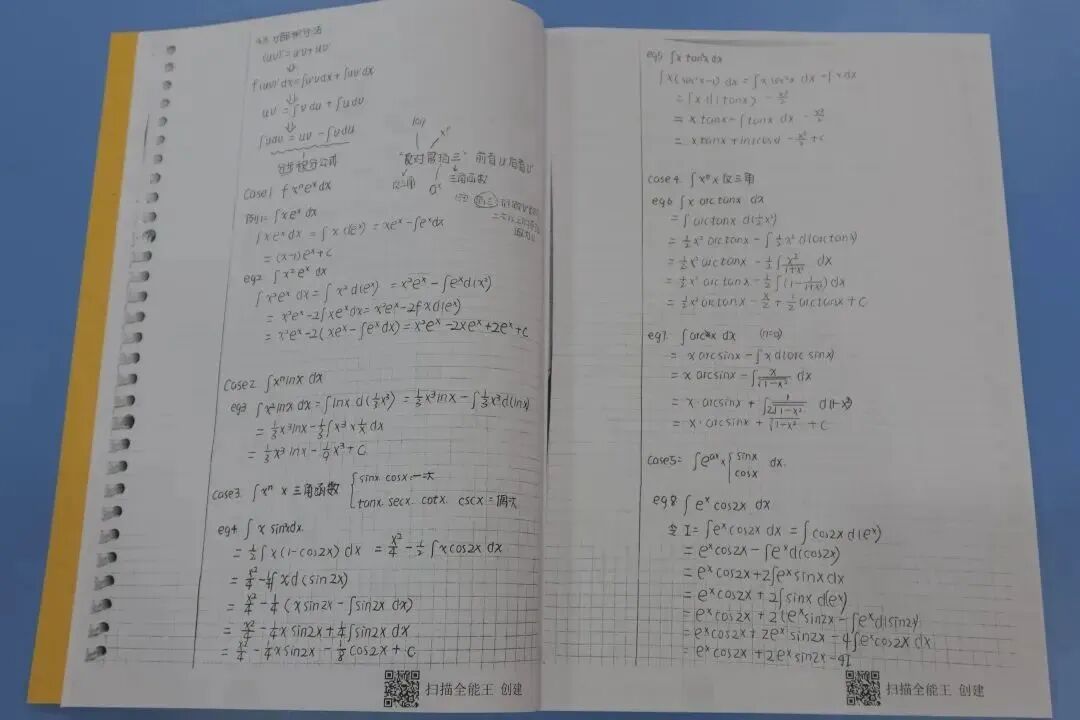 分部积分法
(uv)' = u'v + uv'
∫(uv)'dx = ∫u'v dx + ∫uv'dx
uv = ∫v du + ∫u dv
∫u dv = uv - ∫v du
分部积分公式
"反对幂指三" 前者u后者v'
反三角 三角函数
Case1 ∫x^n e^x dx
例1: ∫xe^x dx
∫xe^x dx = ∫x d(e^x) = xe^x - ∫e^x dx
= (x-1)e^x + C
eg2 ∫x²e^x dx
∫x²e^x dx = ∫x² d(e^x) = x²e^x - ∫e^x d(x²)
= x²e^x - 2∫xe^x dx = x²e^x - 2∫x d(e^x)
= x²e^x - 2(xe^x - ∫e^x dx) = x²e^x - 2xe^x + 2e^x + C
Case2 ∫x^n lnx dx
eg3 ∫x²lnx dx = ∫lnx d(1/3x³) = 1/3x³lnx - ∫1/3x³d(lnx)
= 1/3x³lnx - 1/3∫x³ × 1/x dx
= 1/3x³lnx - 1/9x³ + C
Case3. ∫x^n × 三角函数 { sinx cosx 一次
tanx. secx. cotx. cscx = 偶次
eg4 ∫x sin²x dx.
= 1/2∫x(1-cos2x) dx = x²/4 - 1/2∫xcos2x dx
= x²/4 - 1/4∫x d(sin2x)
= x²/4 - 1/4(xsin2x - ∫sin2x dx)
= x²/4 - 1/4xsin2x + 1/4∫sin2x dx
= x²/4 - 1/4xsin2x - 1/8cos2x + C
扫描全能王 创建
eg5 ∫x tan²x dx
∫x(sec²x-1)dx = ∫x sec²x dx - ∫x dx
= ∫x d(tanx) - x²/2
= x tanx - ∫tanx dx - x²/2
= x tanx + ln|cosx| - x²/2 + C
case4. ∫x^n × 反三角
eg6 ∫x arctanx dx
= ∫arctanx d(1/2x²)
= 1/2x² arctanx - ∫1/2x² d(arctanx)
= 1/2x² arctanx - 1/2∫x²/(1+x²) dx
= 1/2x² arctanx - 1/2∫(1 - 1/(1+x²))dx
= 1/2x² arctanx - x/2 + 1/2arctanx + C
eg7. dx (n=0)
= x arcsinx - ∫x d(arcsinx)
= x arcsinx - ∫x/√(1-x²) dx
= x·arcsinx + ∫1/(2√(1-x²)) d(1-x²)
= x·arcsinx + √(1-x²) + C
case5: ∫e^(ax) × { sinx
cosx dx.
eg8 ∫e^x cos2x dx
令I = ∫e^x cos2x dx = ∫cos2x d(e^x)
= e^x cos2x - ∫e^x d(cos2x)
= e^x cos2x + 2∫e^x sinx dx
= e^x cos2x + 2∫sinx d(e^x)
= e^x cos2x + 2(e^x sin2x - ∫e^x d(sin2x)
= e^x cos2x + 2e^x sin2x - 4∫e^x cos2x dx
= e^x cos2x + 2e^x sin2x - 4I
扫描全能王 创建